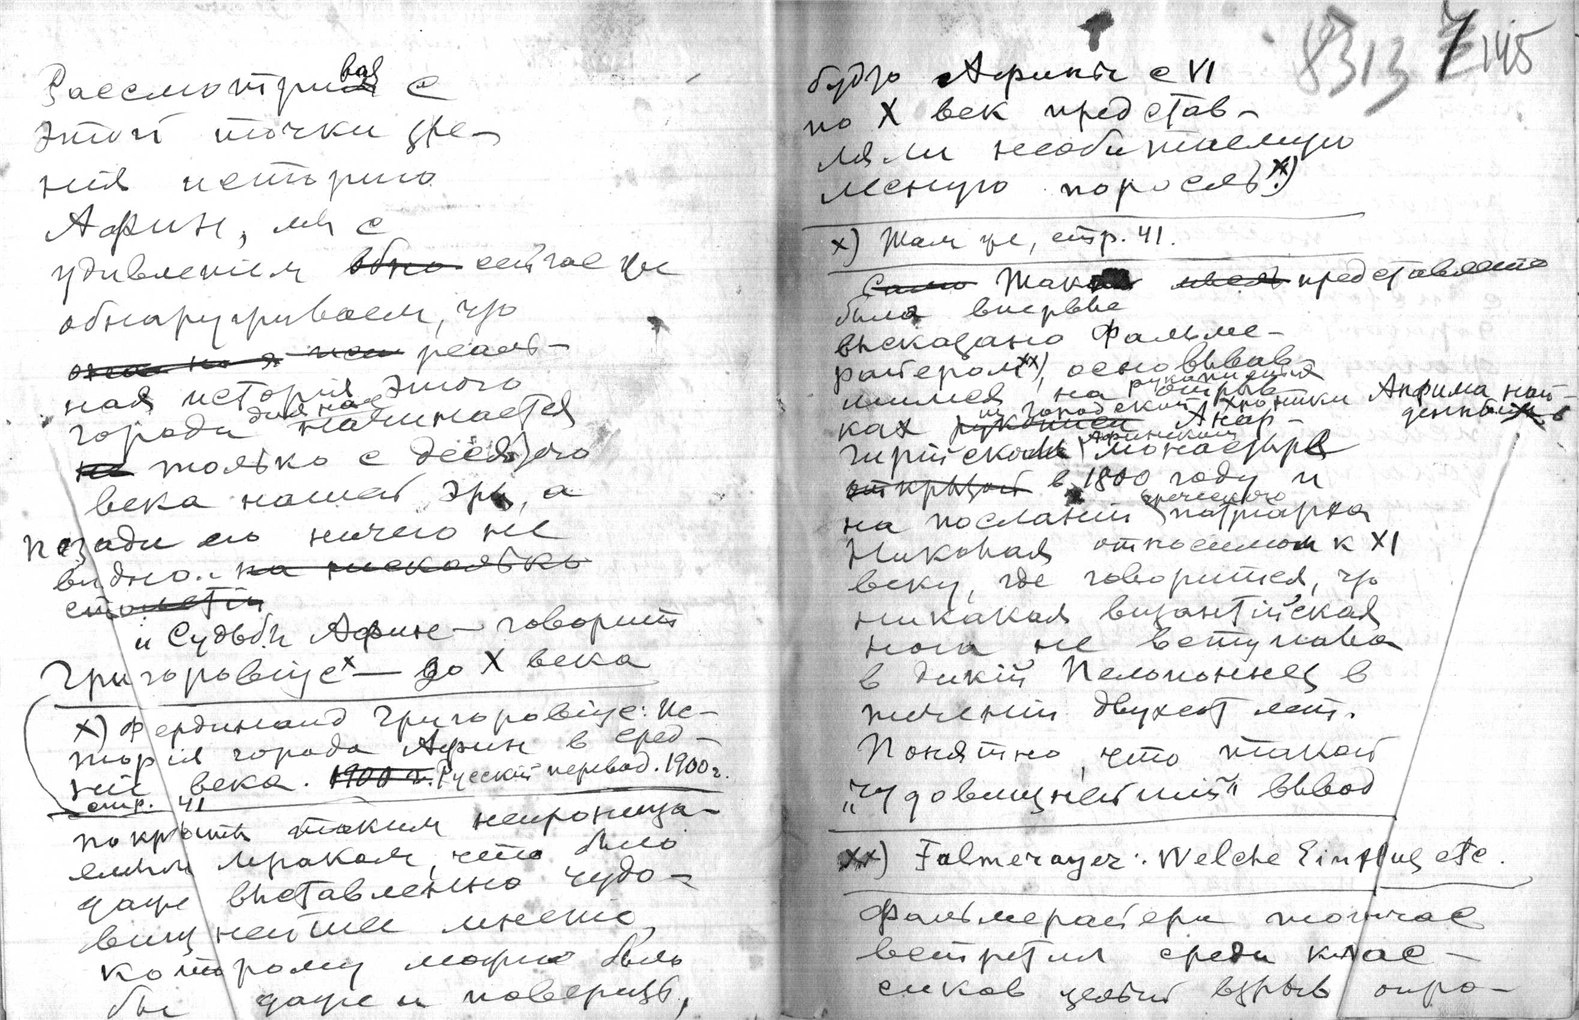 Рассматривая с
этой точки зре-
нiя исторiю
Афин, мы с
удивленiем сейчас же
обнаруживаем, что
реаль-
ная исторiя этого
города для нас начинается
только с десятого
века нашей эры, а
позади его ничего не
видно..
„Судьбы Афин — говорит
Григоровiус x — до X века
x) Фердинанд Григоровiус: Ис-
торiя города Афин в сред-
нiе века. 1900 г. Русскiй перевод. 1900 г.
стр. 41
покрыты таким непроница-
емым мраком, что было
даже выставленно чудо-
вищнейшее мненiе,
которому можно было
бы даже и поверить,
8313 7 145
будто Афины с VI
по X век представ-
ляли необитаемую
лесную поросль." x)
x) Там же, стр. 41.
Само Такое представленiе
было впервые
высказано Фальме-
райером xx), основывав-
шимся на рукописных отрыв-
ках из городской хроники Анфима най-
денных в
Анар-
гирийском Афинском монастыре
в 1800 году и
на посланiи греческого патрiарха
Николая относимом к XI
веку, где говорится, что
никакая византiйская
нога не вступала
в дикiй Пелопоннез в
теченiи двухсот лет.
Понятно, что такой
„чудовищнейшiй" вывод
xx) Falmerayer: Welche Einfluz etc.
Фальмерайера тотчас
встретил среди клас-
сиков целый взрыв опро-